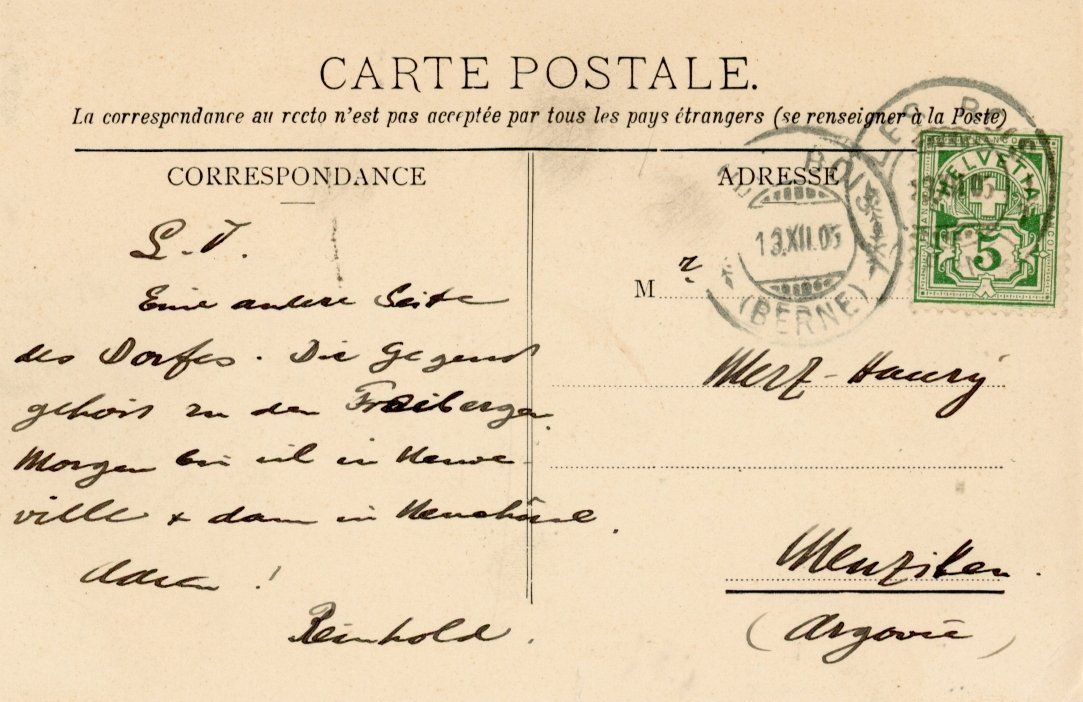 CARTE POSTALE.
La correspondance au recto n'est pas acceptée par tous les pays étrangers (se renseigner à la Poste)
CORRESPONDANCE
ADRESSE
LES BOIS
LES BOIS
13.XII.05
(BERNE)
HELVETIA
FRANCO
5
L. T.
Eine andere Seite
des Dorfes. Die Gegend
gehört zu den Freibergen.
Morgen bin ich in Neuve-
ville & dann in
Reinhold.
M r
Merz-Haury
Menziken.
(Argovie)